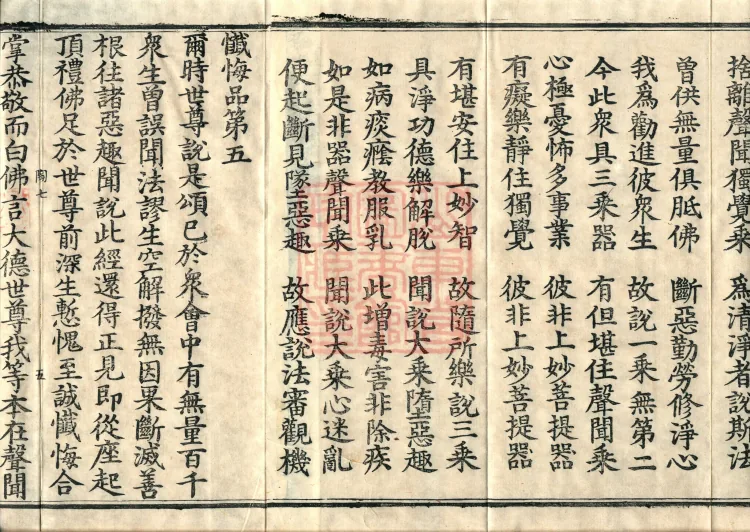 捨離聲聞獨覺乘　為清淨者說斯法
曾供無量俱胝佛　斷惡勤勞修淨心
我為勸進彼衆生　故說一乘無第二
今此衆具三乘器　有但堪住聲聞乘
心極憂怖多事業　彼非上妙菩提器
有癡樂靜住獨覺　彼非上妙菩提器
有堪安住上妙智　故隨所樂說三乘
具淨功德樂解脫　聞說大乘墮惡趣
如病痰癊教服乳　此增毒害非除疾
如是非器聲聞乘　聞說大乘心迷亂
便起斷見墜惡趣　故應說法審觀機
懺悔品第五
爾時世尊說是頌已於衆會中有無量百千
衆生曾誤聞法謬生空解撥無因果斷滅善
根往諸惡趣聞說此經還得正見即從座起
頂禮佛足於世尊前深生慙愧至誠懺悔合
陶七
五
掌恭敬而白佛言大德世尊我等本在聲聞